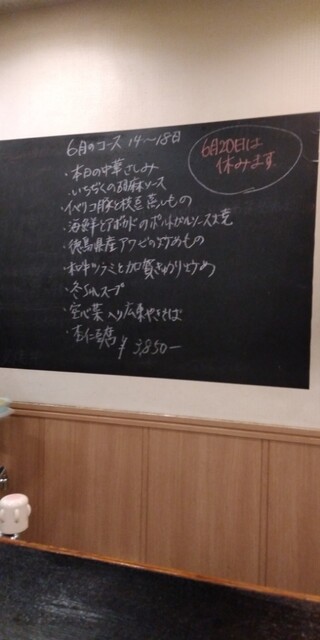 6月のコース 14〜18日
6月20日は
休みます
・本日の中華さしみ
・いちぢくの胡麻ソース
・イベリコ豚と枝豆蒸しもの
・海鮮とアボカドのポルトガルソース焼
・徳島県産アワビの炒めもの
・和牛ツラミと加賀きゅうり炒め
・冬瓜スープ
・空心菜入り広東やきそば
・杏仁豆腐
¥3,850-